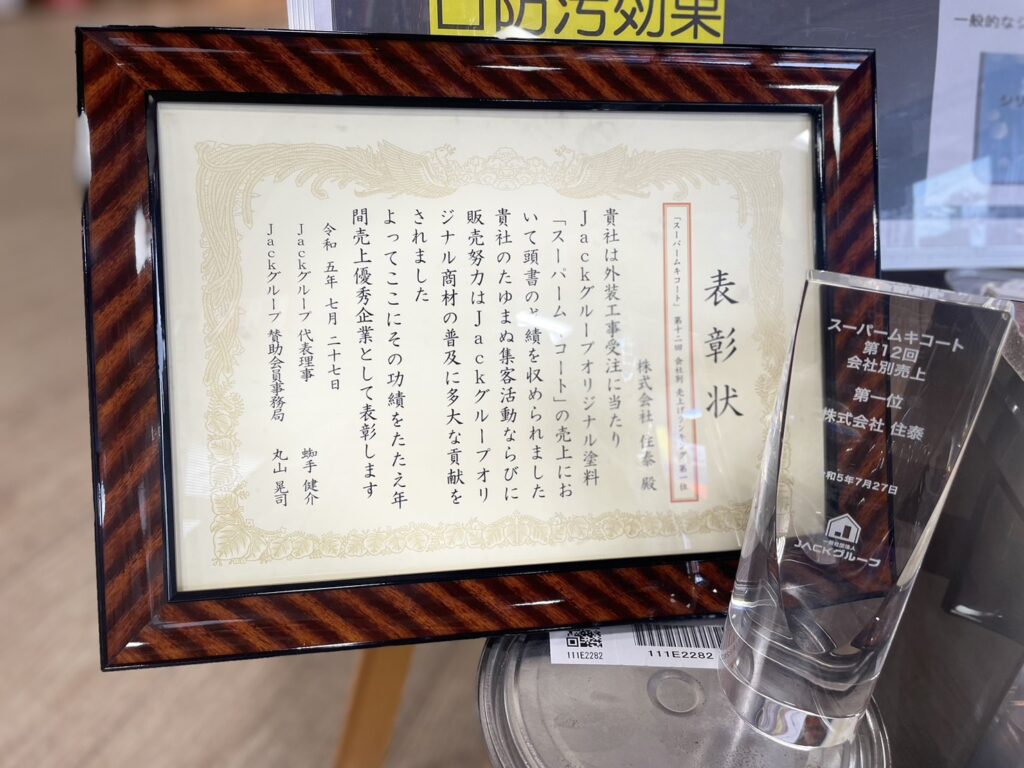 防汚効果
一般的な
表彰状
「スーパームキコート」 第十二回 会社別 売上げランキング 第一位
株式会社 住泰 殿
貴社は外装工事受注に当たり
Jackグループオリジナル塗料
「スーパームキコート」の売上にお
いて頭書の成績を収められました
貴社のたゆまぬ集客活動ならびに
販売努力はJackグループオリ
ジナル商材の普及に多大な貢献を
されました
よってここにその功績をたたえ年
間売上優秀企業として表彰します
令和 五年 七月 二十七日
Jackグループ 代表理事 蜘手 健介
Jackグループ 賛助会員事務局 丸山 晃司
スーパームキコート
第12回
会社別売上
第一位
株式会社 住泰
令和5年7月27日
一般社団法人
JACKグループ
111E2282
111E2282